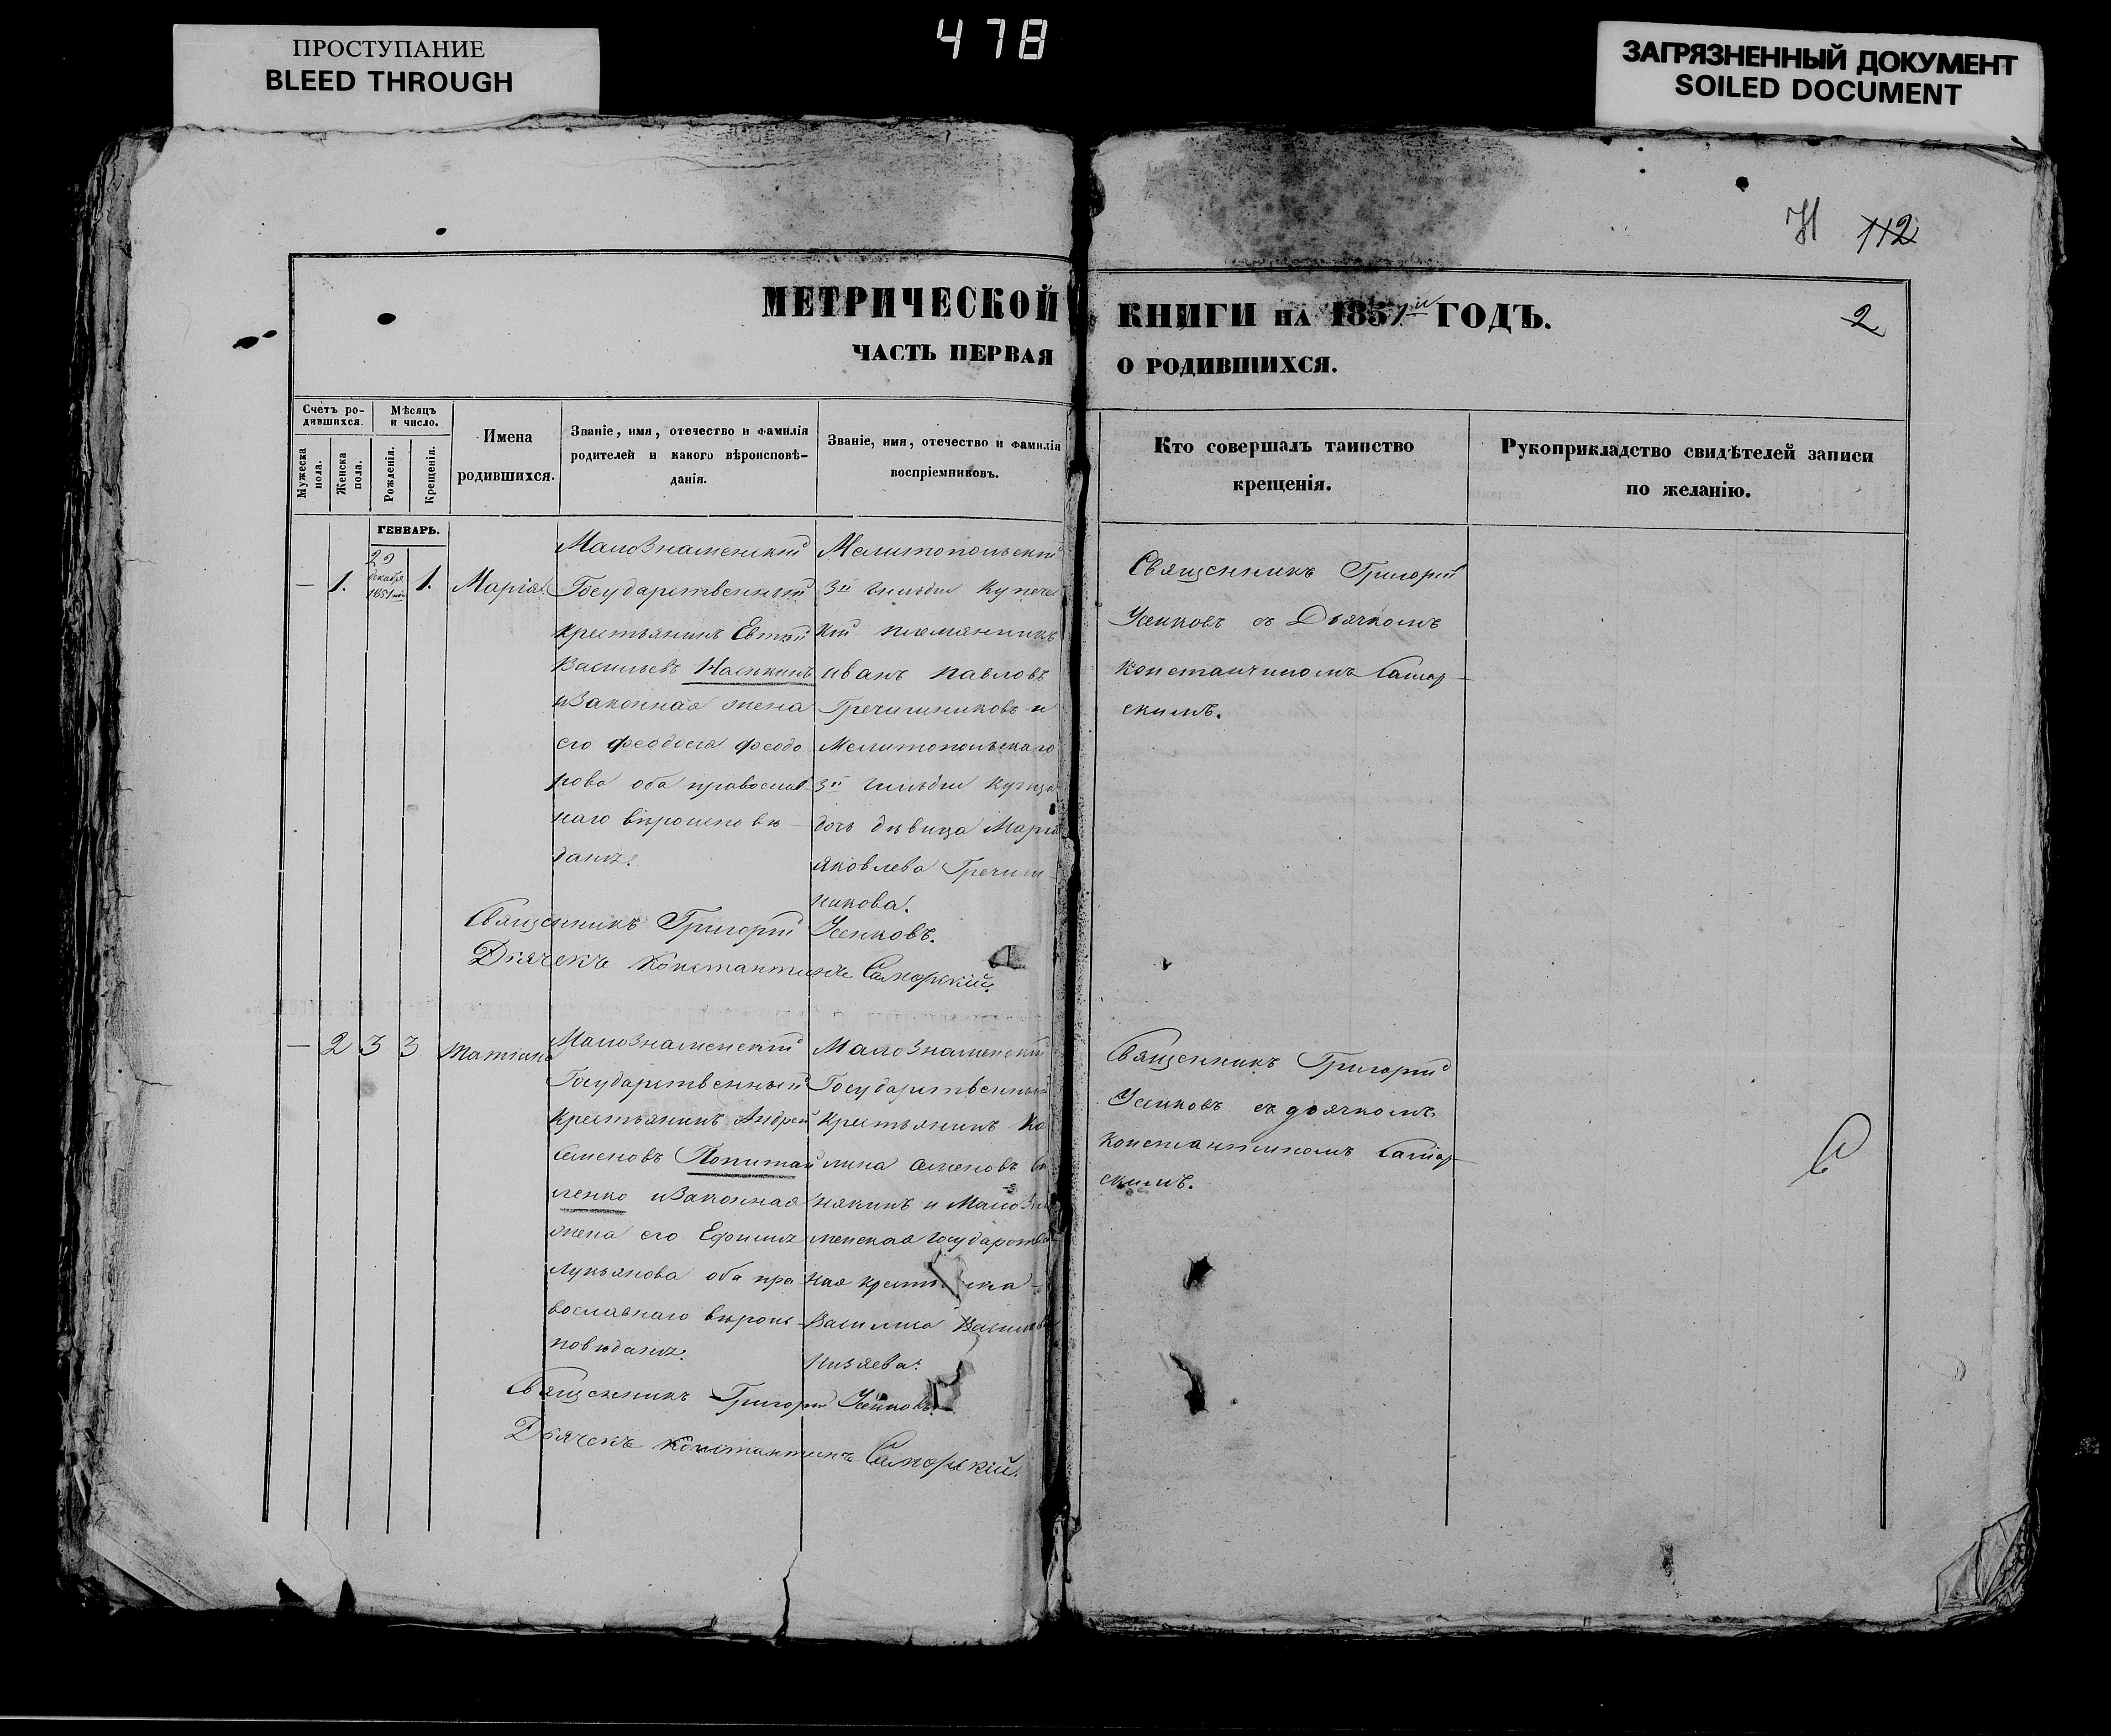 ПРОСТУПАНИЕ
BLEED THROUGH
478
ЗАГРЯЗНЕННЫЙ ДОКУМЕНТ
SOILED DOCUMENT
112
МЕТРИЧЕСКОЙ КНИГИ НА 1851 ГОДЪ.
2
ЧАСТЬ ПЕРВАЯ О РОДИВШИХСЯ.
Счетъ ро-
дившихся.
Мѣсяцъ
и число.
Мужеска
пола.
Женска
пола.
Рожденія.
Крещенія.
Имена
родившихся.
Званіе, имя, отечество и фамилія
родителей и какого вѣроисповѣ-
данія.
Званіе, имя, отечество и фамилія
воспріемниковъ.
Кто совершалъ таинство
крещенія.
Рукоприкладство свидѣтелей записи
по желанію.
ГЕНВАРЬ.
— 1.
29
декабря
1.
Марія
МалоЗнаменскій
Государственный
крестьянинъ
Васильевъ
иЗаконная жена
его феодосія феодо
рова оба православ
наго вѣроисповѣ—
данія.
Мелитопольскій
3й гильдіи купечес
кій племянникъ
иванъ Павловъ
Гречишниковъ и
Мелитопольскаго
3й гильдіи купца
дочь дѣвица Марія
Яковлева Гречиш
никова.
Священникъ Григорій
Усенковъ съ Дьячкомъ
Константиномъ Самор—
скимъ.
Священникъ Григорій Усенковъ.
Дьячекъ Константинъ Саморскій.
— 2 3 3
Татіана
МалоЗнаменскій
Государственный
Крестьянинъ Андрей
Семеновъ Попитай
ленко иЗаконная
жена его Ефимія
Лукьянова оба пра
вославнаго вѣроис—
повѣданія.
МалоЗнаменскій
Государственный
Крестьянинъ
Семеновъ
и МалоЗна
менская государствен
ная
Василиса
Священникъ Григорій
Усенковъ съ дьячкомъ
Константиномъ Самор—
скимъ.
Священникъ Григорій Усенковъ.
Дьячекъ Константинъ Саморскій.